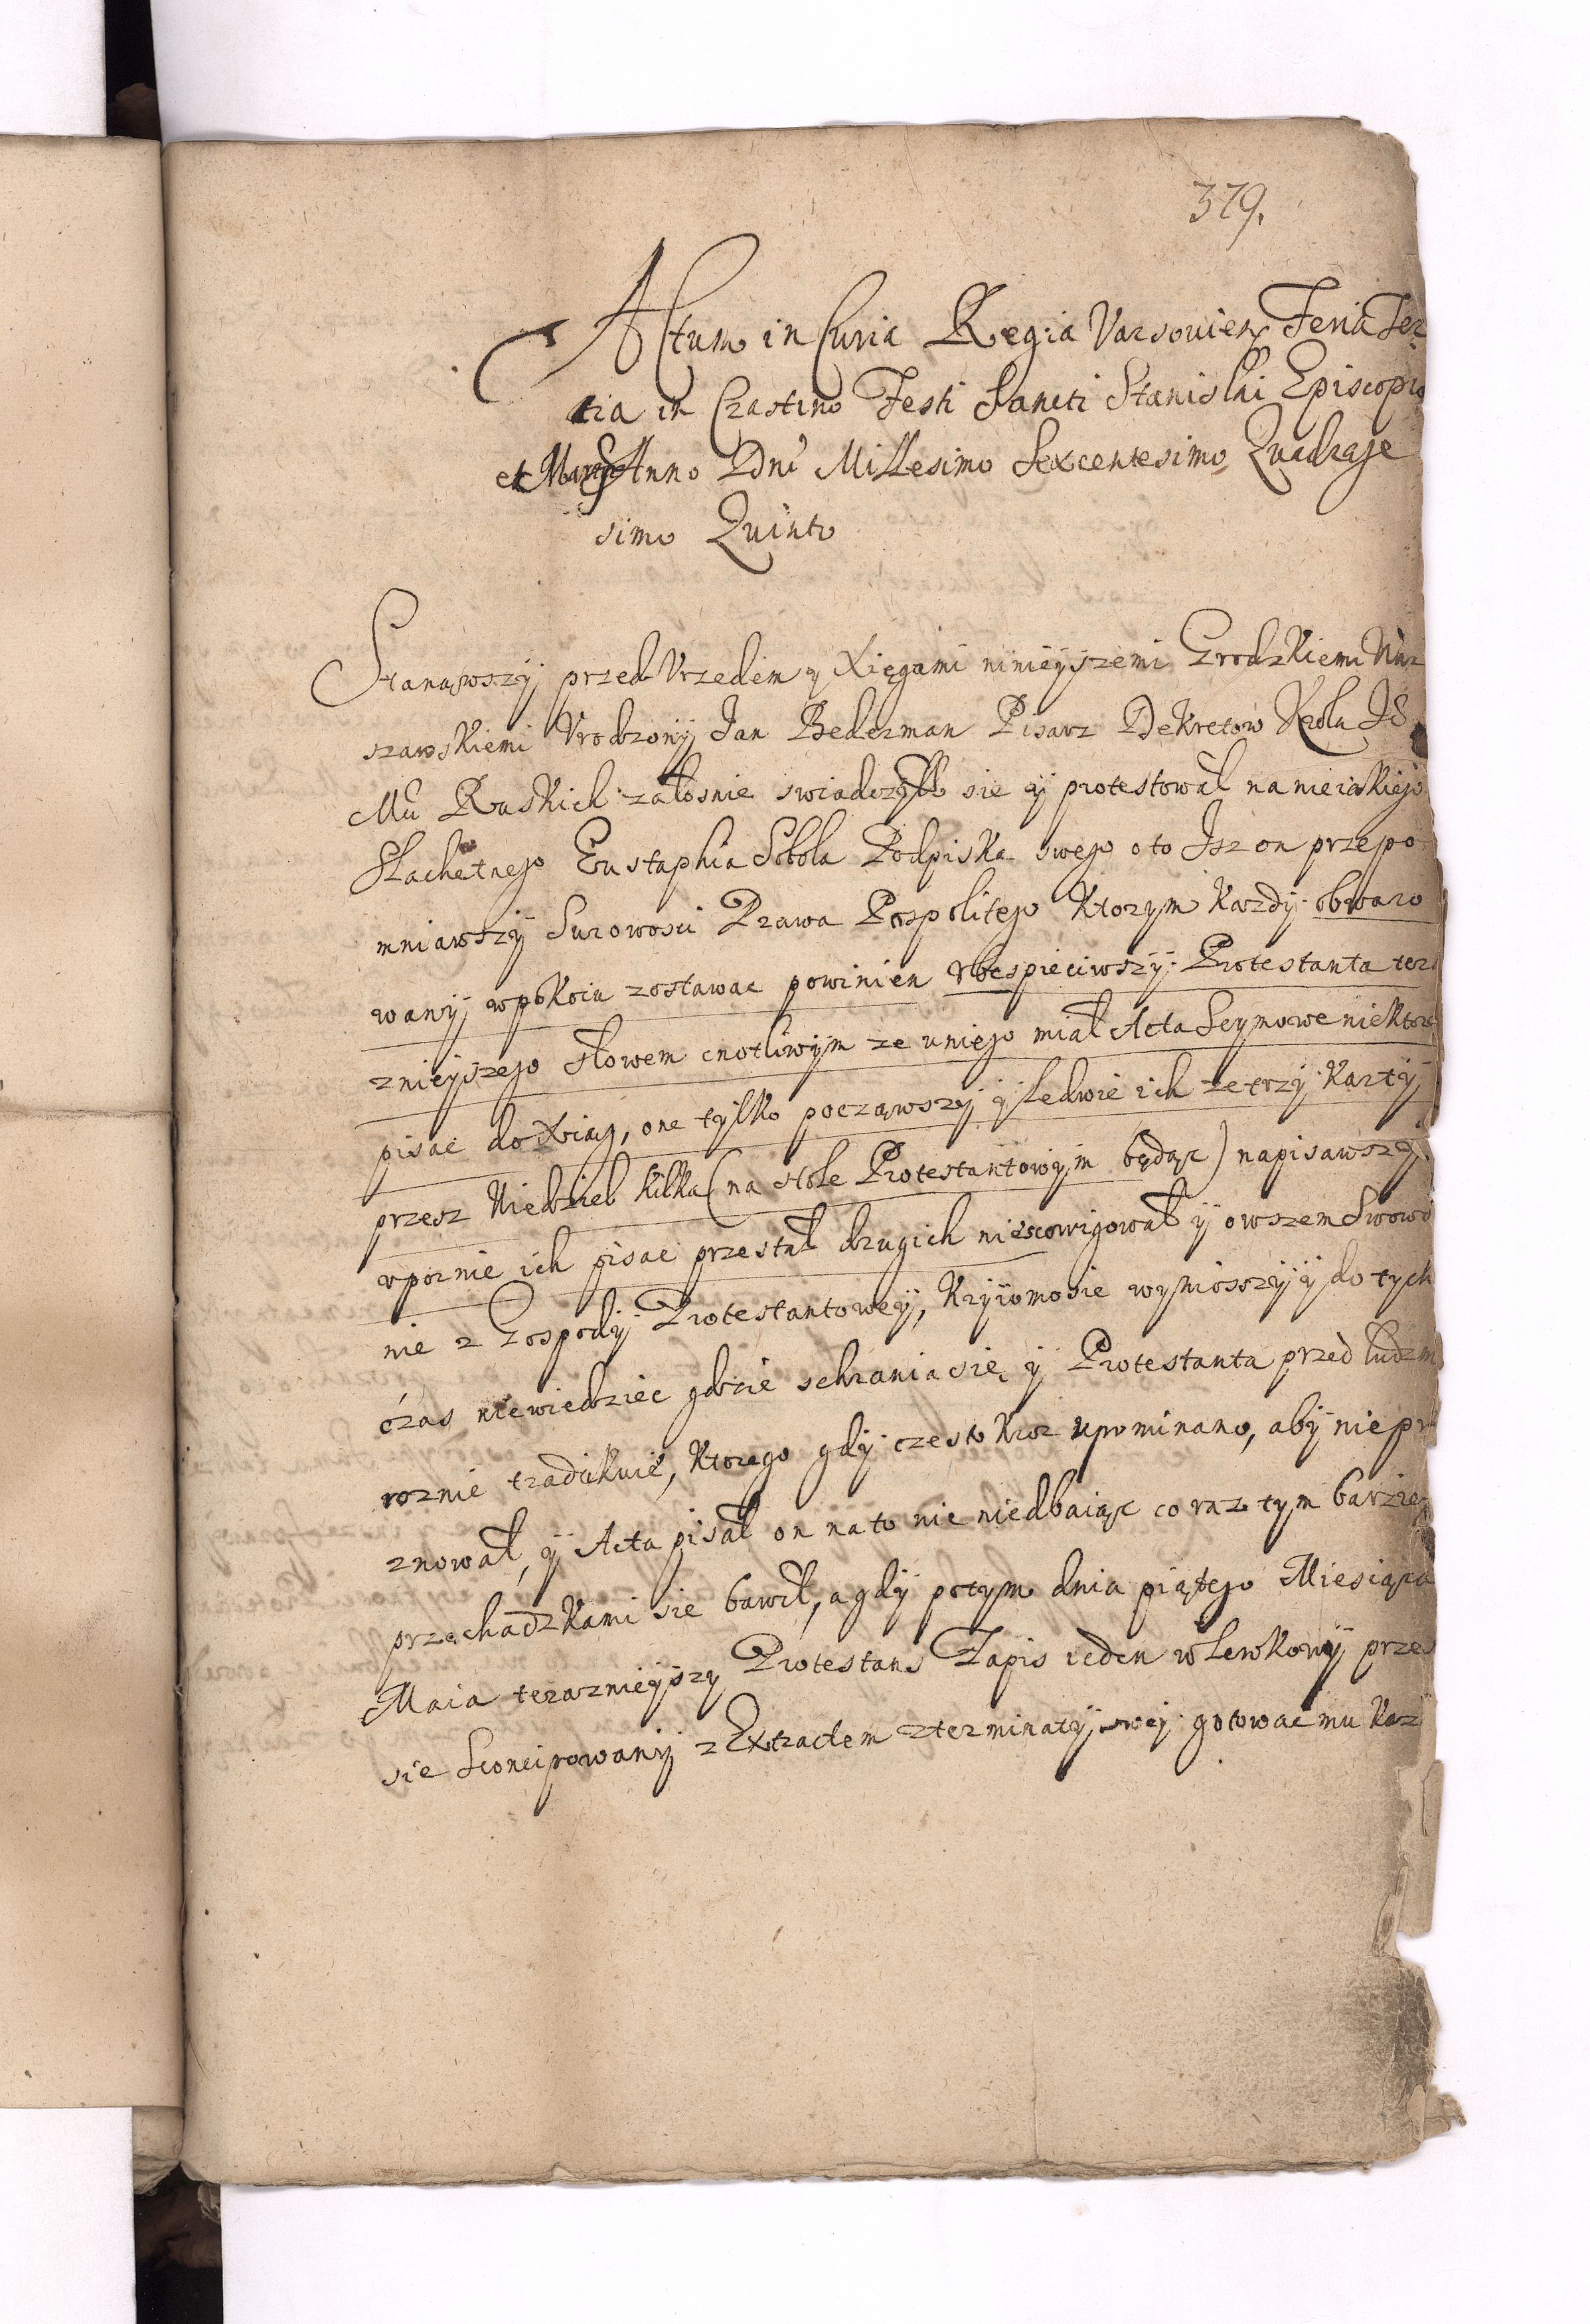 379.
Actum in Curia Regia Varsouien Feria Ter
tia in Crastino Festi Sancti Stanislai Episcopi
et Anno Dni Millesimo Sexcentesimo Quadrage
simo Quinto
Stanąwszy przed Vrzedem y Xięgami ninieyszemi Grodzkiemi War
szawskiemi Vrodzony Jan Bederman Pisarz Dekretow Krola JE
Mu Ruskich załosnie swiadczył sie y protestował na nieiakiego
Slachetnego Eustaphia Sobola Podpiska swego o to Isz on przepo
mniawszy Surowosci Prawa Pospolitego Ktorym Kazdy obwaro
wany w pokoiu zostawac powinien vbespieciwszy Protestanta ter
znieyszego słowem cnotliwym ze v niego miał Acta Seymowe niektore
pisac do Xiąg, one tylko począwszy y ledwie ich ze trzy Karty
przesz Niedziel kilka (na stole Protestantowym będąc) napisawszy
vpornie ich pisac przestał drugich nie scorrigował y owszem Swowo
nie z Gospody Protestantowey, Kryiomo sie wyniosszy y do tych
czas niewiedziec gdzie schrania się y Protestanta przed ludzmi
roznie tradukuie, Ktorego gdy czesto Kroc vpominano, aby nie pr
znował, y Acta pisał on na to nie niedbaiąc co raz tym barzie
przechadzkami sie bawił, a gdy potym dnia piątego Miesiąca
Maia terazniejszy Protestans Zapis ieden w Lewkowy przes
sie Sconcipowany z Extractem z terminaty swey gotowac mu Kaz